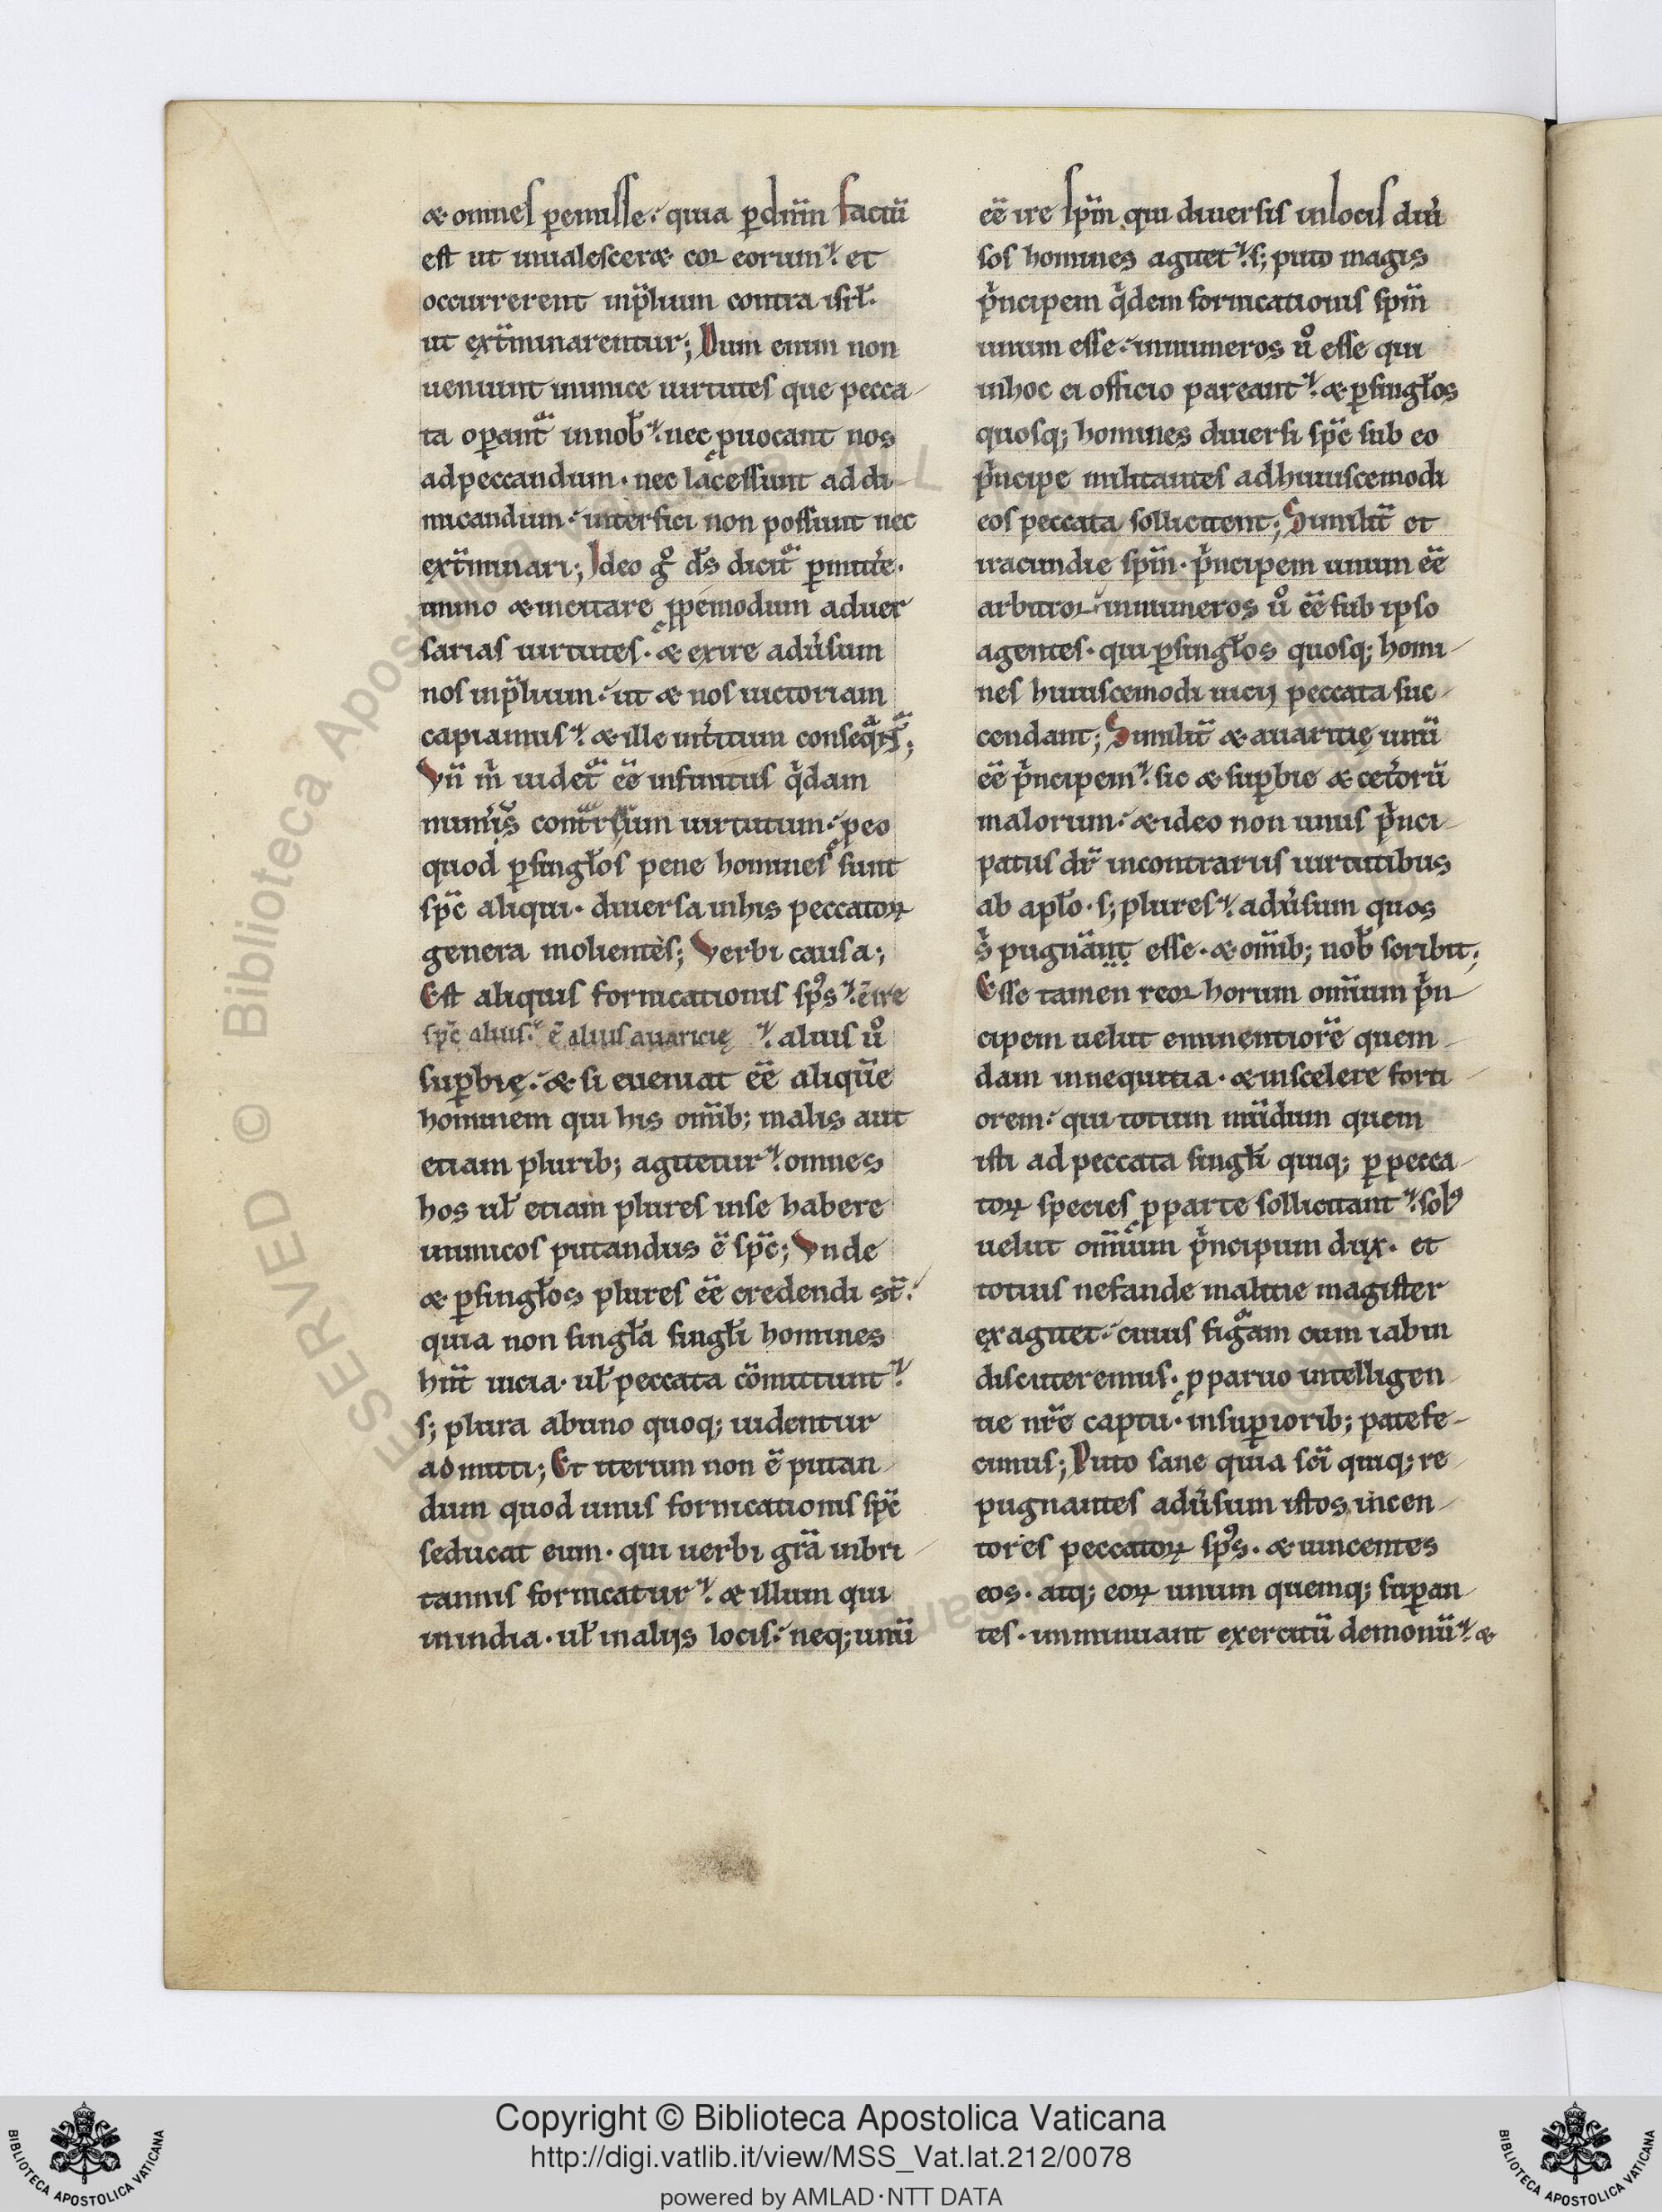 & omnes ꝑemisse. quia ꝑ dn̄m factū
est ut inualescer& cor eorum. et
occurrerent inp̄lium contra isrł.
ut ext̄minarentur; Dum enim non
ueniunt inimice uirtutes que pecca
ta oꝑant᷑ innob̄. nec ꝓuocant nos
adpeccandum. nec lacessunt addi
micandum. interfici non possunt nec
ext̄minari; Ideo gͦ d̄s dicit᷑ ꝑmitt̄e.
immo & incitare ꝓpemodum aduer
sarias uirtutes. & exire adūsum
nos inp̄lium. ut & nos uictoriam
capiamus. & ille int̄itum conseq̄ņt᷑;
Vn̄ m̄ uidet᷑ ēē infinitus q̇dam
num̄is contrariarum uirtutum. ꝓeo
quod ꝑsingłos pene homines sunt
sp̄c aliqui. diuersa inhis peccatoꝝ
genera molientes; Verbi causa;
Est aliquis fornicationis sp̄s. ē ire
sp̄c alius. ē alius auaricię. alius ů
suꝑbię. & si eueniat ēē aliquē
hominem qui his om̄ib; malis aut
etiam plurib; agitetur. omnes
hos uł etiam plures inse habere
inimicos putandus ē sp̄c; Vnde
& ꝑsingłos plures ēē credendi st̄.
quia non singła singłi homines
hn̄t uicia. uł peccata cōmittunt.
s; plura abuno quoq; uidentur
admitti; Et iterum non ē putan
dum quod unus fornicationis sp̄c
seducat eum. qui uerbi gr̄a inbri
tannis fornicatur. & illum qui
inindia. uł inalijs locis. neq; unū
ēē ire sp̄m qui diuersis inlocis diū
sos homines agitet. s; puto magis
ṗncipem q̇dem fornicationis sp̄m
unum esse. innumeros ů esse qui
inhoc ei officio pareant. & ꝑsingłos
quosq; homines diuersi sp̄c sub eo
ṗncipe militantes adhuiuscemodi
eos peccata sollicitent; Similit̄ et
iracundie sp̄m. ṗncipem unum ēē
arbitror. innumeros ů ēē sub ipso
agentes. qui ꝑsingłos quosq; homi
nes huiuscemodi uicij peccata suc
cendant; Similit̄ & auaritię unū
ēē ṗncipem. sic & suꝑbie & cet̄orū
malorum. & ideo non unus ṗnci
patus dr̄ incontrariis uirtutibus
ab apło. s; plures. adūsum quos
s̄ pugnant esse. & om̄ib; nob̄ scribit;
Esse tamen reor horum omīum ṗn
cipem uelut eminentiorē quem
dam innequitia. & inscelere forti
orem. qui totum mūdum quem
isti ad peccata singłi quiq; ꝑ pecca
toꝝ species ꝓparte sollicitant. solꝰ
uelut omīum ṗncipum dux. et
totius nefande malitie magister
exagitet. cuius fig᷑am cum iabin
discuteremus. ꝓ paruo intelligen
tie nr̄e captu. insuꝑiorib; patefe
cimus; Puto sane quia sc̄i quiq; re
pugnantes adūsum istos incen
tores peccatoꝝ sp̄s. & uincentes
eos. atq; eoꝝ unum quemq; suꝑan
tes. imminuant exercitū demonū. &
Copyright © Biblioteca Apostolica Vaticana
http://digi.vatlib.it/view/MSS_Vat.lat.212/0078
powered by AMLAD·NTT DATA
BIBLIOTECA APOSTOLICA VATICANA
BIBLIOTECA APOSTOLICA VATICANA